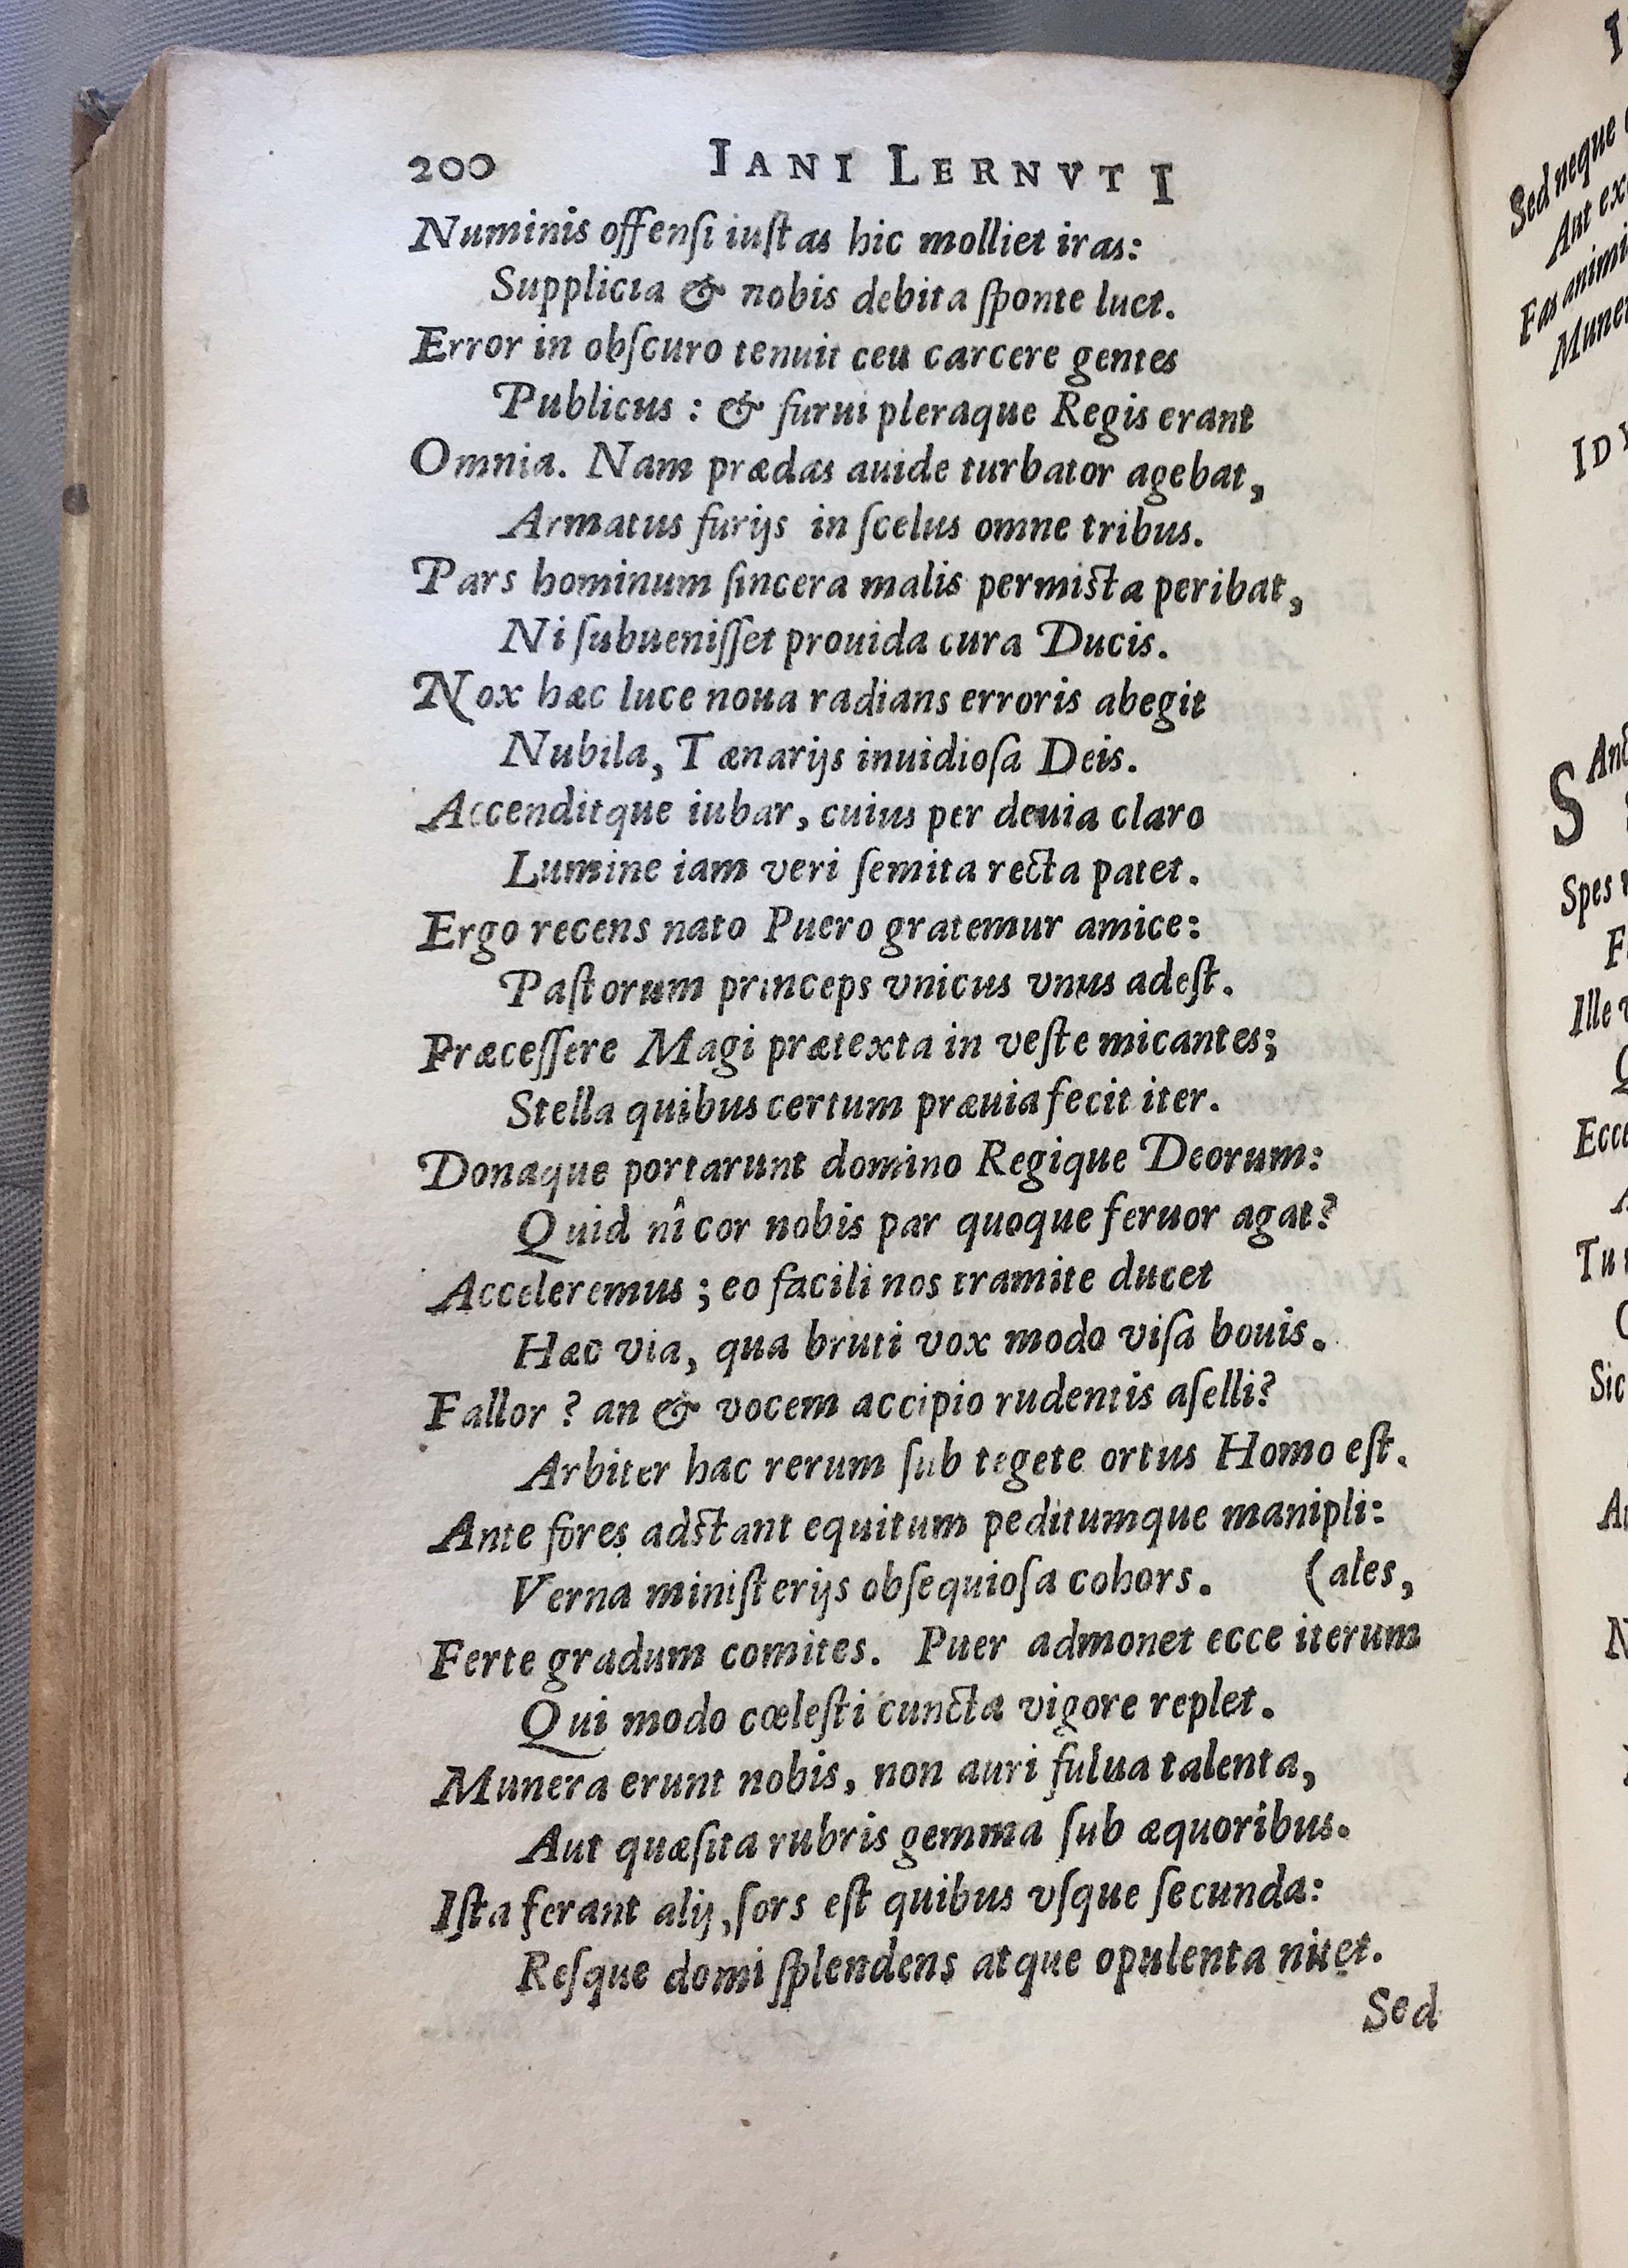 200 IANI LERNVTI
Numinis offenſi iuſtas hic molliet iras:
Supplicia & nobis debita ſponte luet.
Error in obſcuro tenuit ceu carcere gentes
Publicus : & furui pleraque Regis erant
Omnia. Nam prædas auide turbator agebat,
Armatus furijs in ſcelus omne tribus.
Pars hominum ſincera malis permiſta peribat,
Ni ſubueniſſet prouida cura Ducis.
Nox hæc luce noua radians erroris abegit
Nubila, Tænarijs inuidioſa Deis.
Accenditque iubar, cuius per deuia claro
Lumine iam veri ſemita recta patet.
Ergo recens nato Puero gratemur amice:
Paſtorum princeps vnicus vnus adeſt.
Præceſſere Magi prætexta in veſte micantes;
Stella quibus certum præuia fecit iter.
Donaque portarunt domino Regique Deorum:
Quid nî cor nobis par quoque feruor agat?
Acceleremus ; eo facili nos tramite ducet
Hæc via, qua bruti vox modo viſa bouis.
Fallor ? an & vocem accipio rudentis aſelli?
Arbiter hac rerum ſub tegete ortus Homo eſt.
Ante fores adſtant equitum peditumque manipli:
Verna miniſterijs obſequioſa cohors. (ales,
Ferte gradum comites. Puer admonet ecce iterum
Qui modo cœleſti cuncta vigore replet.
Munera erunt nobis, non auri fulua talenta,
Aut quæſita rubris gemma ſub æquoribus.
Iſta ferant alij, ſors eſt quibus vſque ſecunda:
Reſque domi ſplendens atque opulenta nitet.
Sed
Sed neque
Fas animi
S
Spes
Ille
Sic